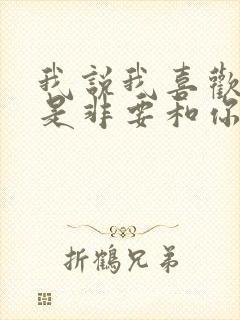 我說我喜歡
是非要和你
折鶴兄弟